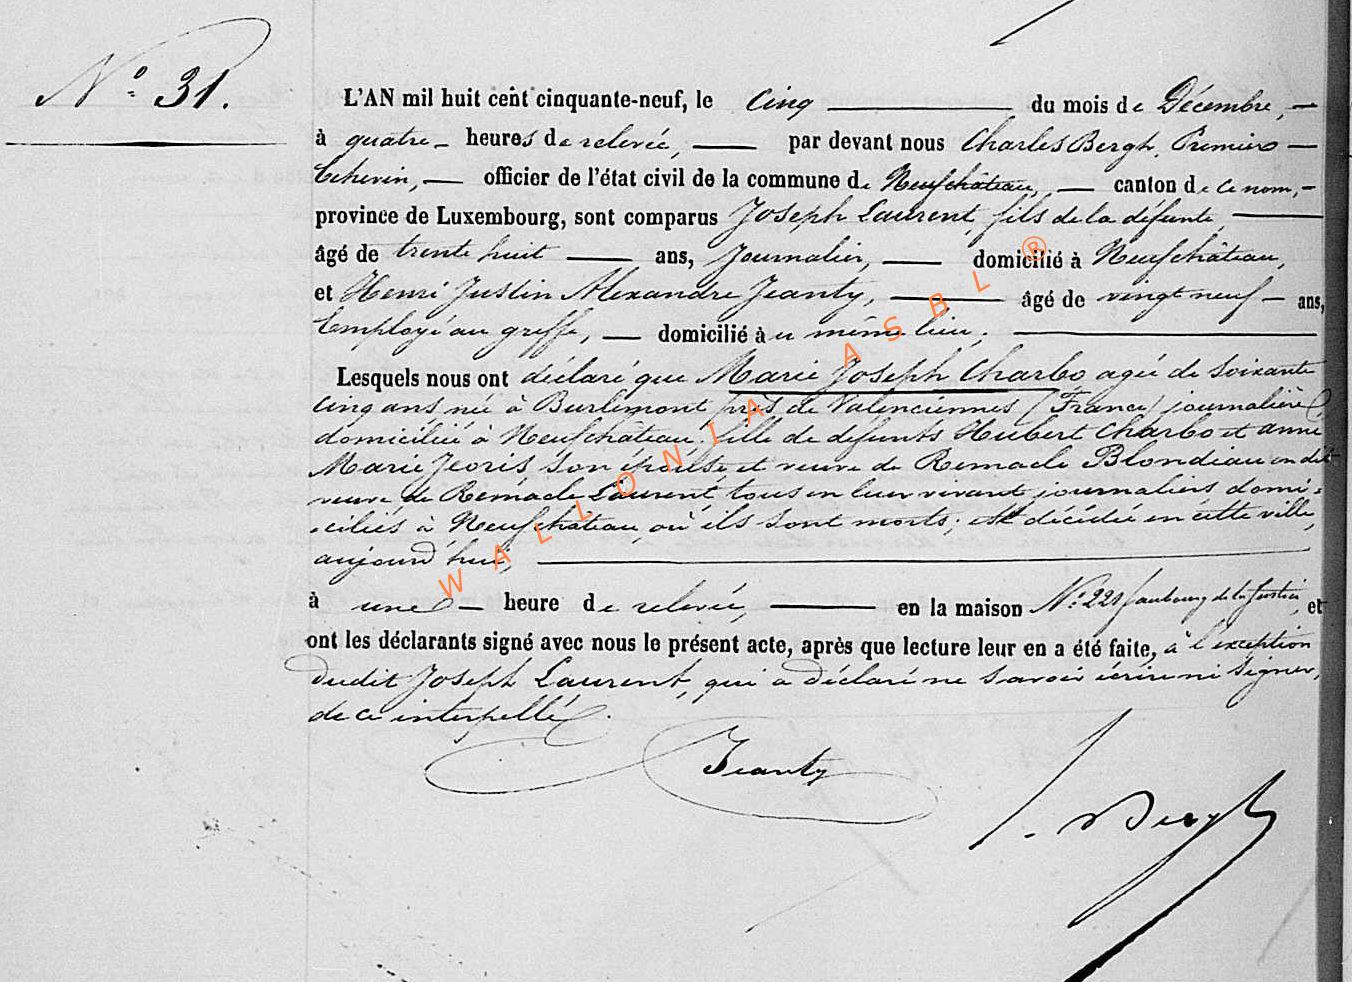 N.º 31.
L'AN mil huit cent cinquante-neuf, le Cinq du mois de Décembre,
à quatre heures de relevée, par devant nous Charles Bergh, Premier
Echevin, officier de l'état civil de la commune de Neufchâteau, canton de ce nom,
province de Luxembourg, sont comparus Joseph Laurent, fils de la défunte,
âgé de trente huit ans, Journalier, domicilié à Neufchâteau,
et Henri Justin Alexandre Jeanty, âgé de vingt neuf ans,
Employé au greffe, domicilié au même lieu;
Lesquels nous ont déclaré que Marie Joseph Charbo agée de soixante
cinq ans née à Burlémont près de Valenciennes (France) journalière,
domiciliée à Neufchâteau, fille de defunts Hubert Charbo et anne
Marie Jeoris son épouse et veuve de Remacle Blondiau on dit
veuve de Remacle Laurent, tous en leur vivant journaliers domi-
ciliés à Neufchâteau, où ils sont morts; est décédée en cette ville,
aujourd'hui,
à une heure de relevée, en la maison N.º 221 faubourg de la Justice, et
ont les déclarants signé avec nous le présent acte, après que lecture leur en a été faite, à l'exception
dudit Joseph Laurent, qui a déclaré ne savoir écrire ni signer,
de ce interpellé.
Jeanty
Bergh
WALLONIA ASBL ®